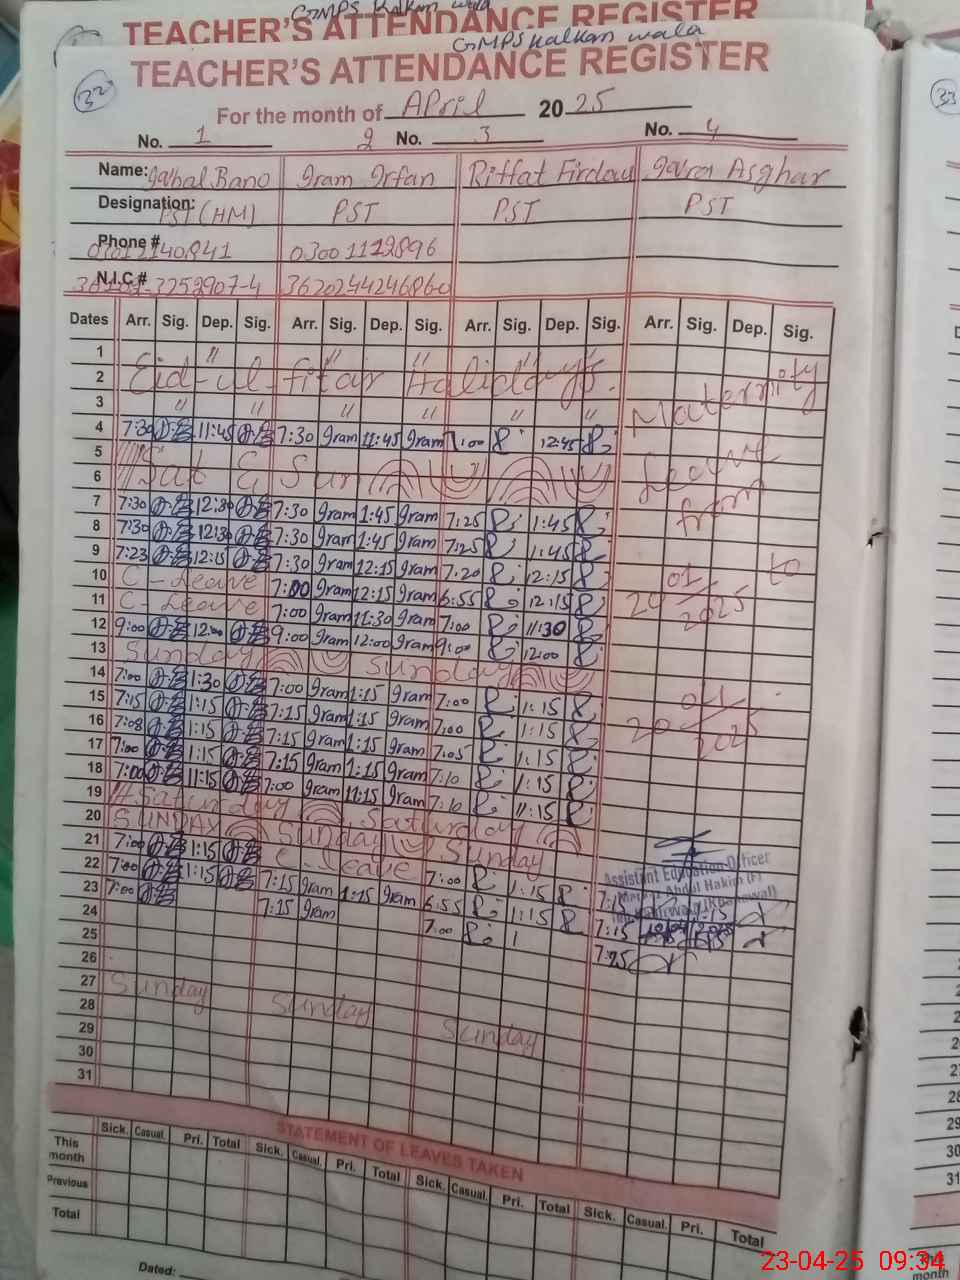 TEACHER'S ATTENDANCE REGISTER
GMPS Kalkan wala
TEACHER'S ATTENDANCE REGISTER
32
33
For the month of April 2025
No. 1 2 No. 3 No. 4
Name: Iqbal Bano Iram Irfan Riffat Firdau Iqra Asghar
Designation: PST (HM) PST PST PST
Phone # 03001122896
N.I.C #
Dates Arr. Sig. Dep. Sig. Arr. Sig. Dep. Sig. Arr. Sig. Dep. Sig. Arr. Sig. Dep. Sig.
1 " " " " "
2 Eid-ul-fitar Halidays. Maternity
3 " " " " " "
4 7:30 11:45 7:30 Iram 11:45 Iram 7:00 12:45
5 Leave
6 Sat & Sun
7 7:30 12:30 7:30 Iram 1:45 Iram 7:25 1:45 from
8 7:30 12:30 7:30 Iram 1:45 Iram 7:25 1:45
9 7:23 12:15 7:30 Iram 12:15 Iram 7:20 12:15
10 C-Leave 7:00 Iram 12:15 Iram 6:55 12:15 20 01 2025 to
11 C-Leave 7:00 Iram 11:30 Iram 7:00 11:30
12 9:00 12:00 9:00 Iram 12:00 Iram 9:00 12:00
13 Sunday Sunday
14 7:00 1:30 7:00 Iram 1:15 Iram 7:00 1:15
15 7:15 1:15 7:15 Iram 1:15 Iram 7:00 1:15 20 04 2025
16 7:08 1:15 7:15 Iram 1:15 Iram 7:05 1:15
17 7:00 1:15 7:15 Iram 1:15 Iram 7:10 1:15
18 7:00 11:15 7:00 Iram 11:15 Iram 7:10 11:15
19 Saturday Saturday
20 SUNDAY Sunday Sunday
21 7:00 1:15 C-Leave 7:00 1:15 7:15
22 7:00 1:15 7:15 Iram 1:15 Iram 6:55 1:15 7:15
23 7:00 7:15 Iram 7:00 1 7:25
Assistant Education Officer
Abdul Hakim (F)
24
25
26
27 Sunday Sunday Sunday
28
29
30
31
STATEMENT OF LEAVES TAKEN
Sick. Casual. Pri. Total Sick. Casual. Pri. Total Sick. Casual. Pri. Total Sick. Casual. Pri. Total
This month
Previous
Total
Dated:
23-04-25 09:34